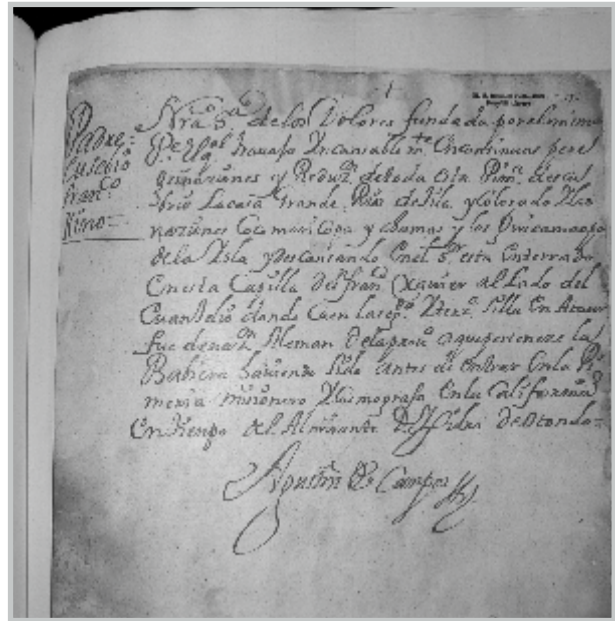 Padre
Eusebio
Franco
Kino=
1
Nra Sa de los Dolores fundada por el mismo
Pe travajo Incansable Con continuas pere
grinaciones y Reduzn de toda esta Pima descu
brio La casa Grande Rios de Jila y Colorado
naziones Cocomaricopa y Yumas y los
de la Isla y descansando en el Sr esta Enterrado
En esta Capilla de Sn Franco Xavier al Lado del
Evangelio donde Caen la Silla En Ataud
fue de nazn Aleman de la a que pertenece la
Babiera haviendo sido antes de entrar En la Pi
meria Misionero En la California
En tiempo del Almirante De Atondo=
Agustin De Campos